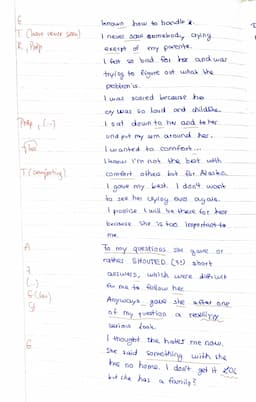 G known how to handle it.
T (have never seen) I never saw somebody crying
R, Prep except of my parents.
I felt so bad for her and was
trying to figure out what the
problem is.
I was scared because her
cry was so loud and childlike.
Prep, (...) I sat down to her and to her
and put my arm around her.
I wanted to comfort...
I know I'm not the best with
T (comforting) comfort others but for Alaska
I gave my best. I don't want
to see her crying ever again.
I promise I will be there for her
because she is too important to
me.
A To my questions she gave or
rather SHOUTED (!) short
? answers, which were difficult
(...) for me to follow her.
Anyways gave she after one
of my question a
serious look.
I thought she hates me now.
G She said something with she
has no home. I don't get it
but she has a family?